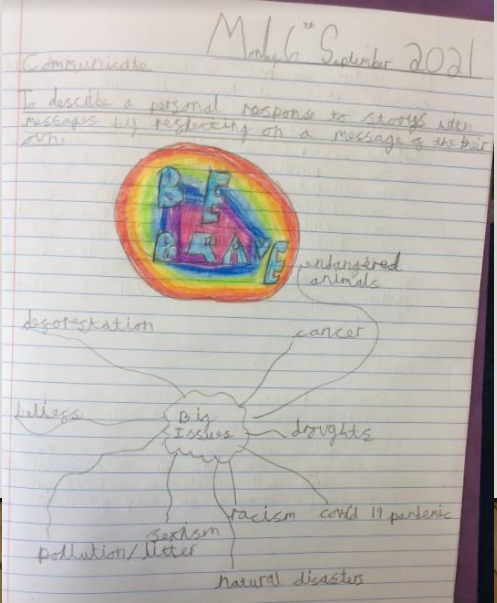 Monday 6th September 2021
Communicate
To descibe a personal response to storys with
messages by reflecting on a message of the their
own.
BE
BRAVE
endangered
animals
deforestation
cancer
beliefs
Big
Issues
droughts
racism
covid 19 pandemic
sexism
pollution/litter
natural disasters